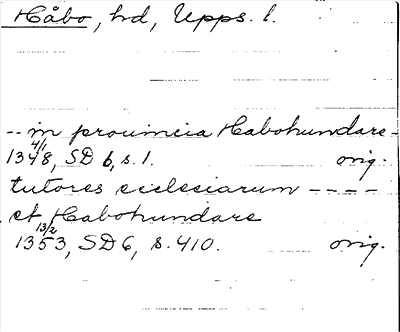 Håbo, hd, Upps. l.
-- in prouincia Habohundare -
4/1
1348, SD 6, s. 1. orig.
tutores ecclesiarum ----
et Habohundare
13/2
1353, SD 6, s. 410. orig.